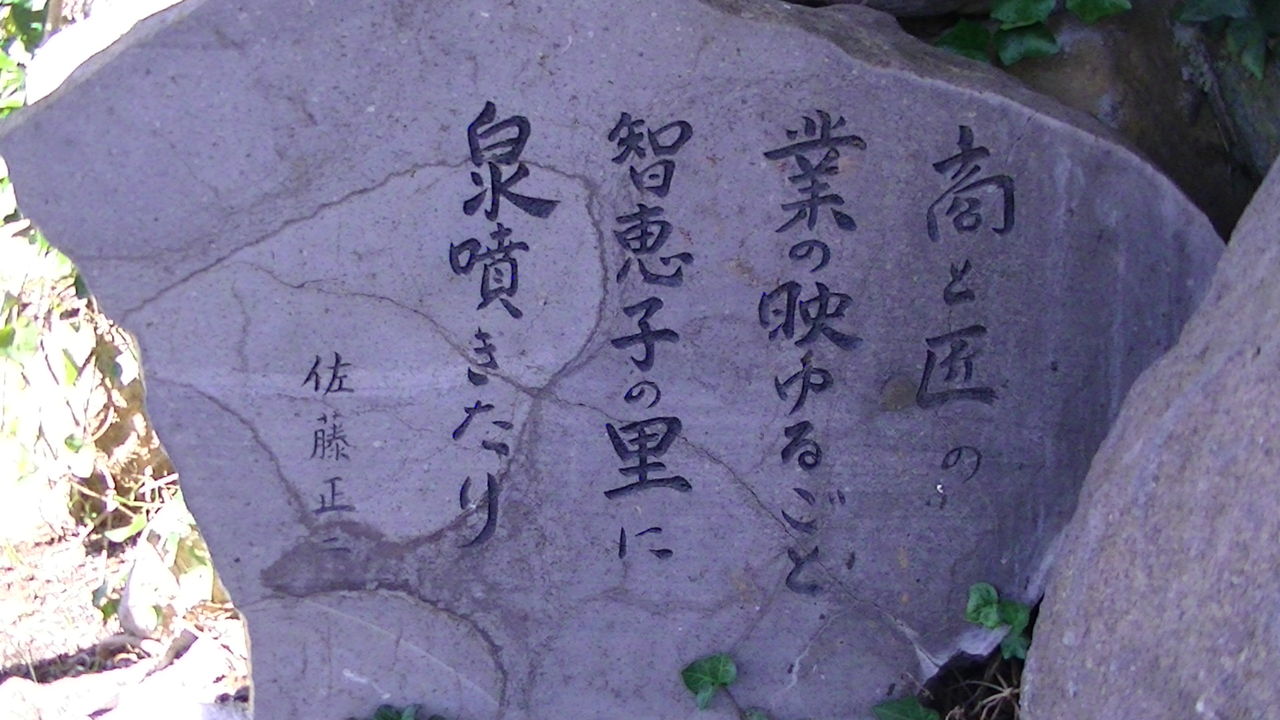 商と匠の
業の映ゆるごと
智恵子の里に
泉噴きたり
佐藤正二